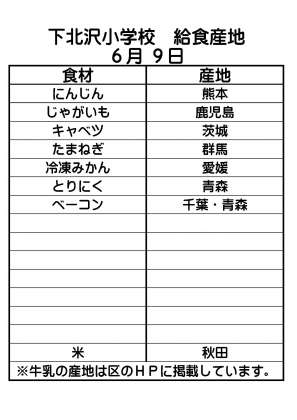 下北沢小学校　給食産地
６月 ９日
食材　産地
にんじん　熊本
じゃがいも　鹿児島
キャベツ　茨城
たまねぎ　群馬
冷凍みかん　愛媛
とりにく　青森
ベーコン　千葉・青森
米　秋田
※牛乳の産地は区のＨＰに掲載しています。